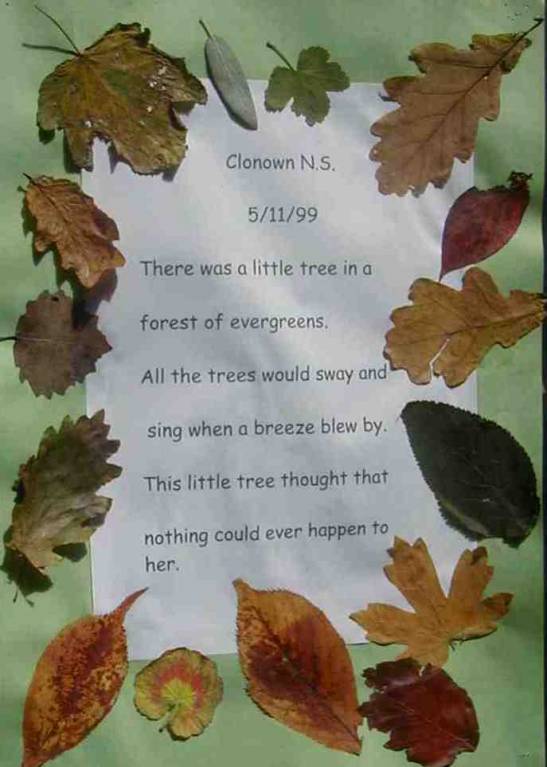 Clonown N.S.
5/11/99
There was a little tree in a
forest of evergreens.
All the trees would sway and
sing when a breeze blew by.
This little tree thought that
nothing could ever happen to
her.